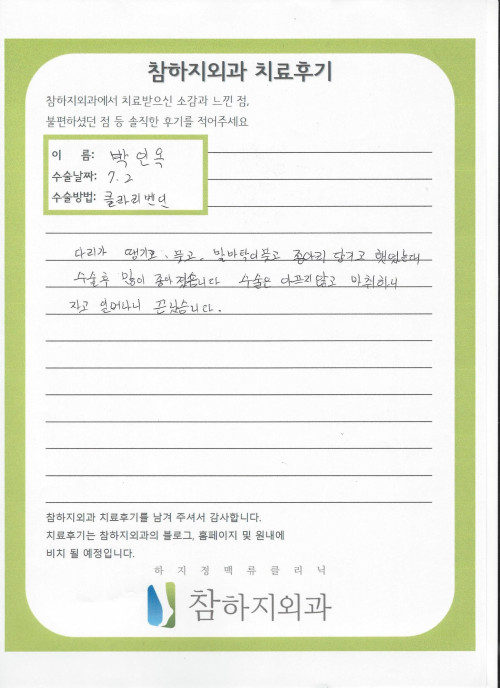 참하지외과 치료후기
참하지외과에서 치료받으신 소감과 느낀 점,
불편하셨던 점 등 솔직한 후기를 적어주세요
이 름: 박인옥
수술날짜: 7. 2
수술방법: 클라리베인
다리가 땡기고, 붓고, 발바닥이붓고 종아리 당기고 했었는데
수술후 많이 좋아졌습니다 수술은 아프지않고 마취하니
자고 일어나니 끈났습니다.
참하지외과 치료후기를 남겨 주셔서 감사합니다.
치료후기는 참하지외과의 블로그, 홈페이지 및 원내에
비치 될 예정입니다.
하지정맥류클리닉
참하지외과